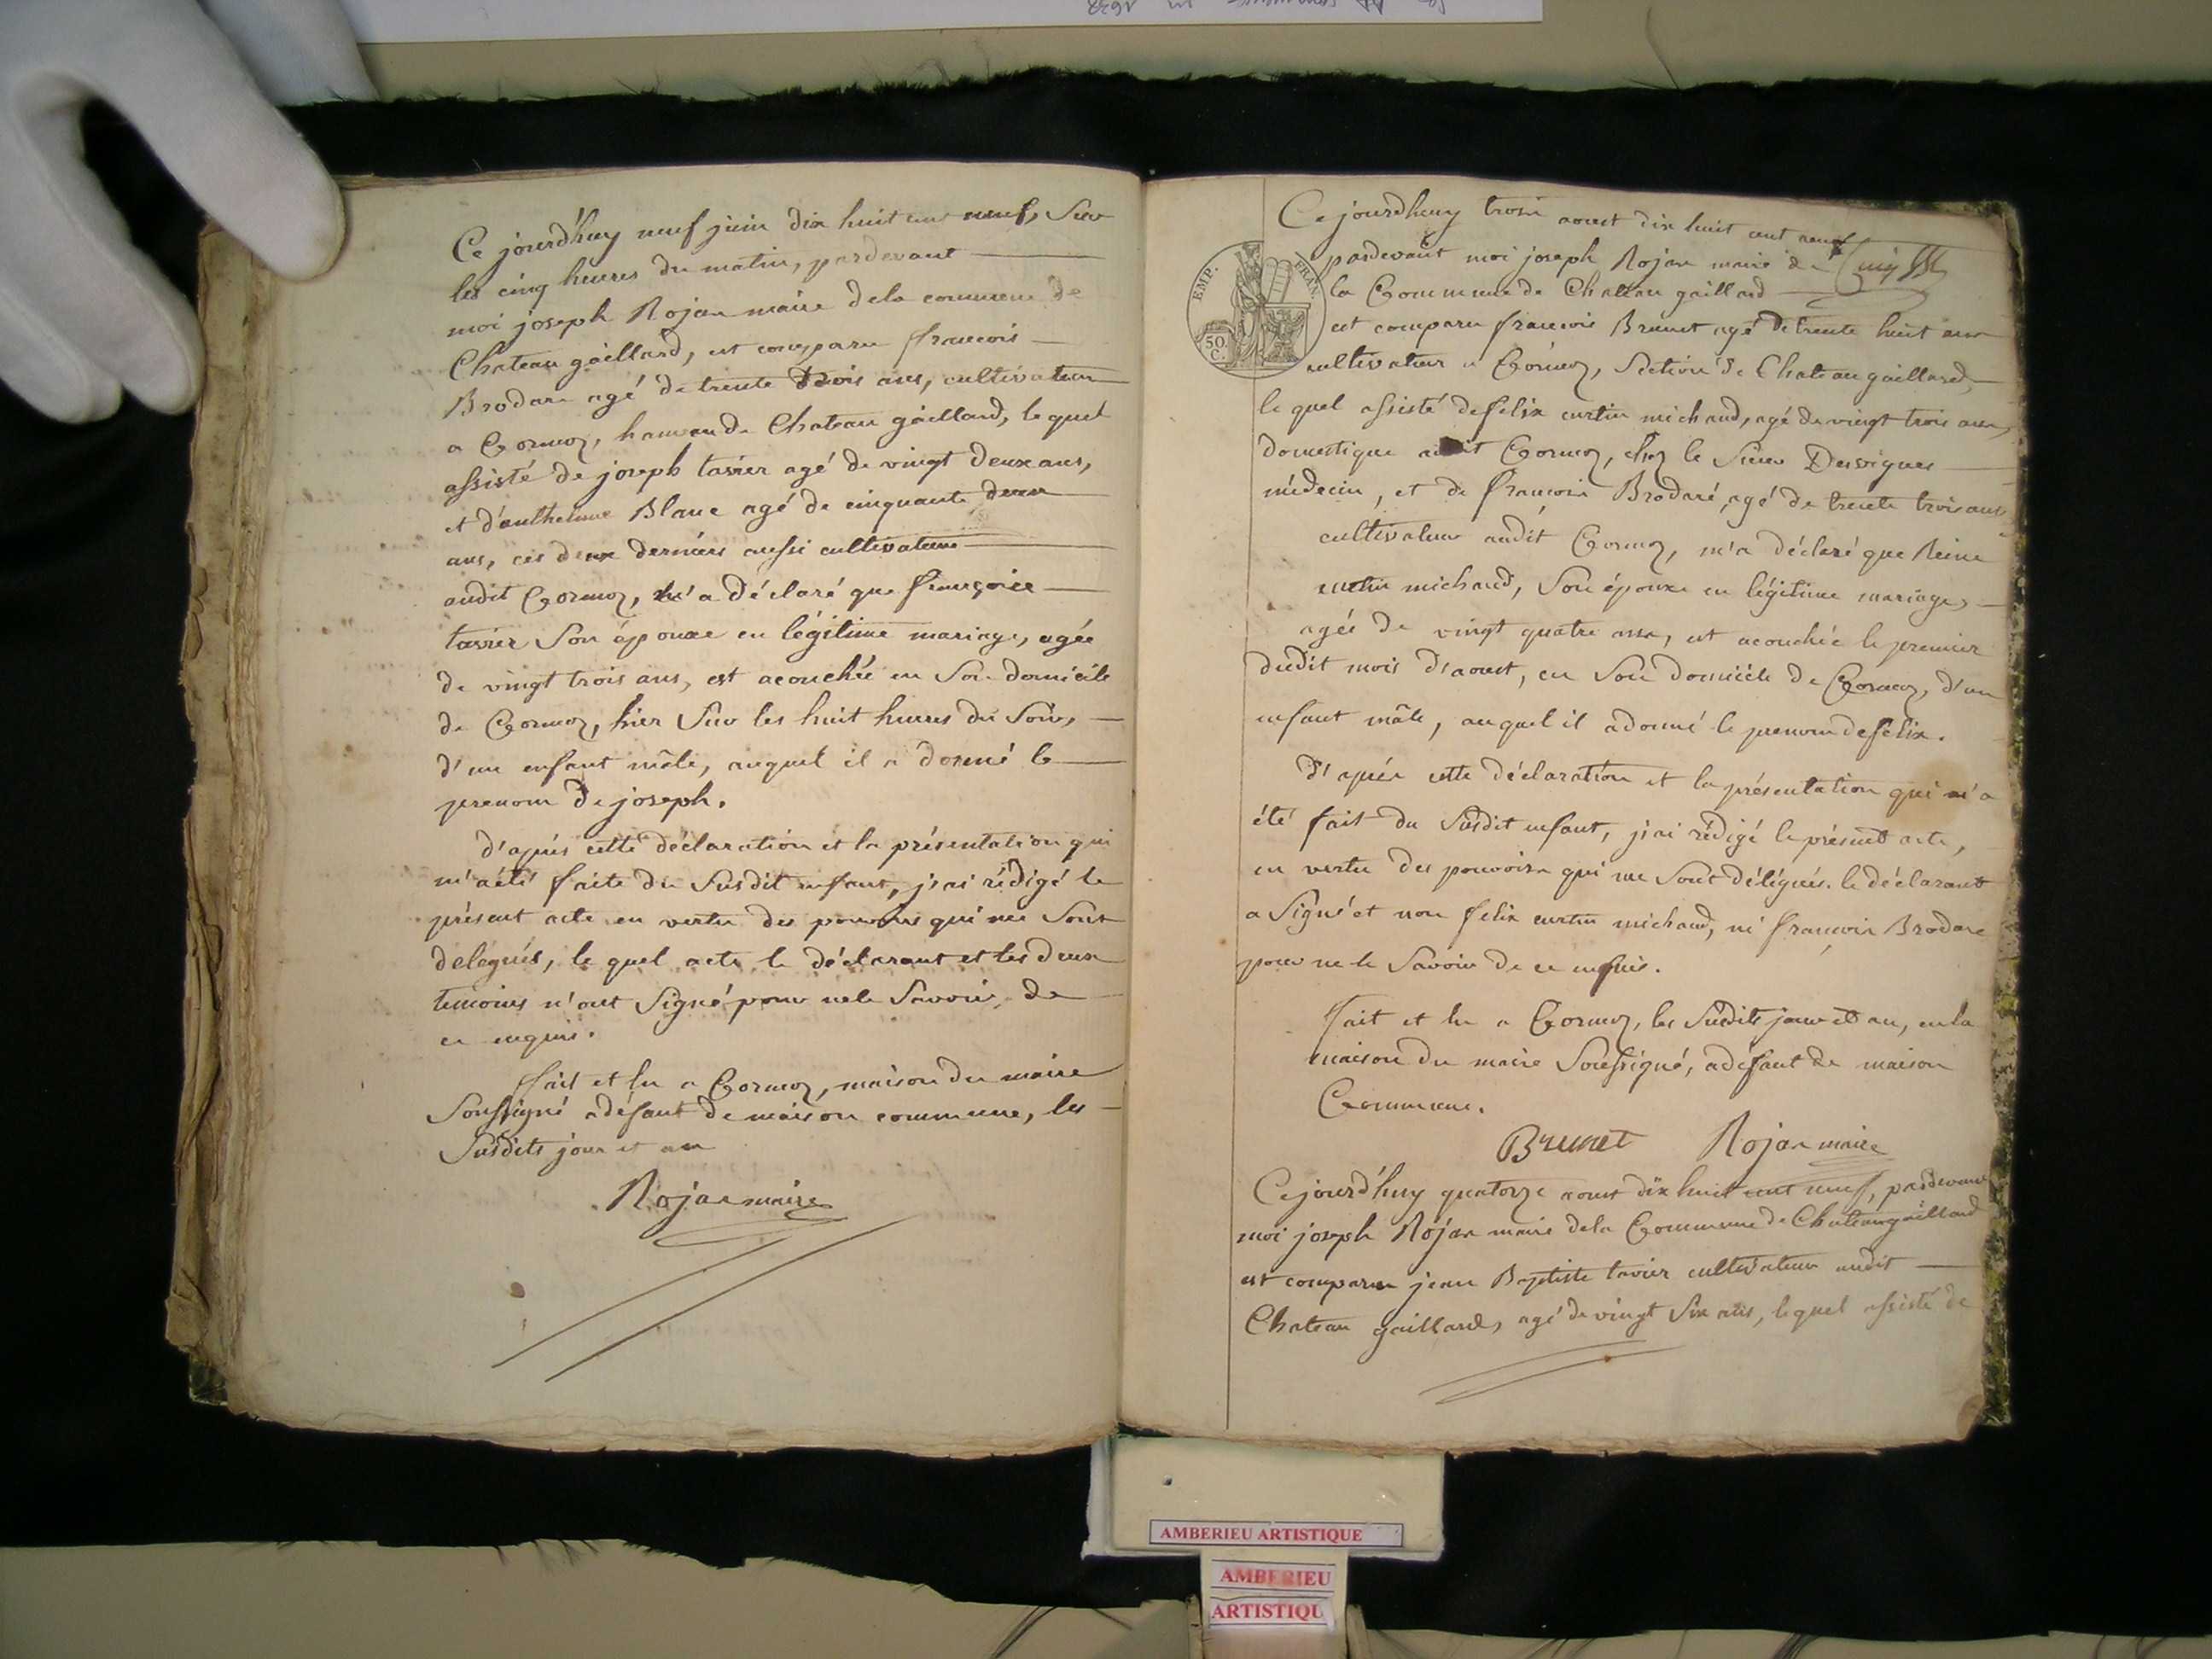 Ce jourd'huy neuf juin dix huit cent neuf, sur
les cinq heures du matin, pardevant
moi joseph Rojan maire dela commune de
Chateau gaillard, est comparu francois
Brodare agé de trente trois ans, cultivateur
a Cormoz, hameau de Chateau gaillard, le quel
assisté de joseph tavier agé de vingt deux ans,
et d'anthelme Blanc agé de cinquante deux
ans, ces deux derniers aussi cultivateurs
audit Cormoz, m'a déclaré que françoise
tavier son épouse en légitime mariage, agée
de vingt trois ans, est acouchée en son domicile
de Cormoz, hier sur les huit heures du soir,
d'un enfant mâle, auquel il a donné le
prenom de joseph.
d'après cette déclaration et la présentation qui
m'a été faite du susdit enfant, j'ai rédigé le
présent acte en vertu des pouvoirs qui me sont
delegués, le quel acte le déclarant et les deux
temoins n'ont signé pour ne le savoir, de
ce enquis.
fait et lu a Cormoz, maison du maire
soussigné a défaut de maison commune, les
susdits jour et an
Rojan maire
EMP. FRAN.
50.
C.
Ce jourdhuy trois aoust dix huit cent neuf
pardevant moi joseph Rojan maire de
la Commune de Chateau gaillard
est comparu francois Brunet agé de trente huit ans
cultivateur a Cormoz, section de Chateau gaillard,
le quel assisté de felix curtin michaud, agé de vingt trois ans,
domestique audit Cormoz, chez le sieur Desvignes
médecin, et de francois Brodare, agé de trente trois ans
cultivateur audit Cormoz, m'a déclaré que Reine
curtin michaud, son épouse en légitime mariage,
agée de vingt quatre ans, est acouchée le premier
dudit mois d'aoust, en son domicile de Cormoz, d'un
enfant mâle, auquel il a donné le prenom de félix.
d'après cette déclaration et la présentation qui m'a
été fait du susdit enfant, j'ai rédigé le présent acte,
en vertu des pouvoirs qui me sont délégués. le déclarant
a signé et non felix curtin michaud, ni françois Brodare
pour ne le savoir de ce enquis.
fait et lu a Cormoz, les susdits jour et an, en la
maison du maire soussigné, a défaut de maison
Commune.
Brunet Rojan maire
Ce jourd'huy quatorze aoust dix huit cent neuf, pardevant
moi joseph Rojan maire dela Commune de Chateaugaillard
est comparu jean Baptiste tavier cultivateur audit
Chateau gaillard, agé de vingt six ans, le quel assisté de
AMBERIEU ARTISTIQUE
AMBERIEU
ARTISTIQU